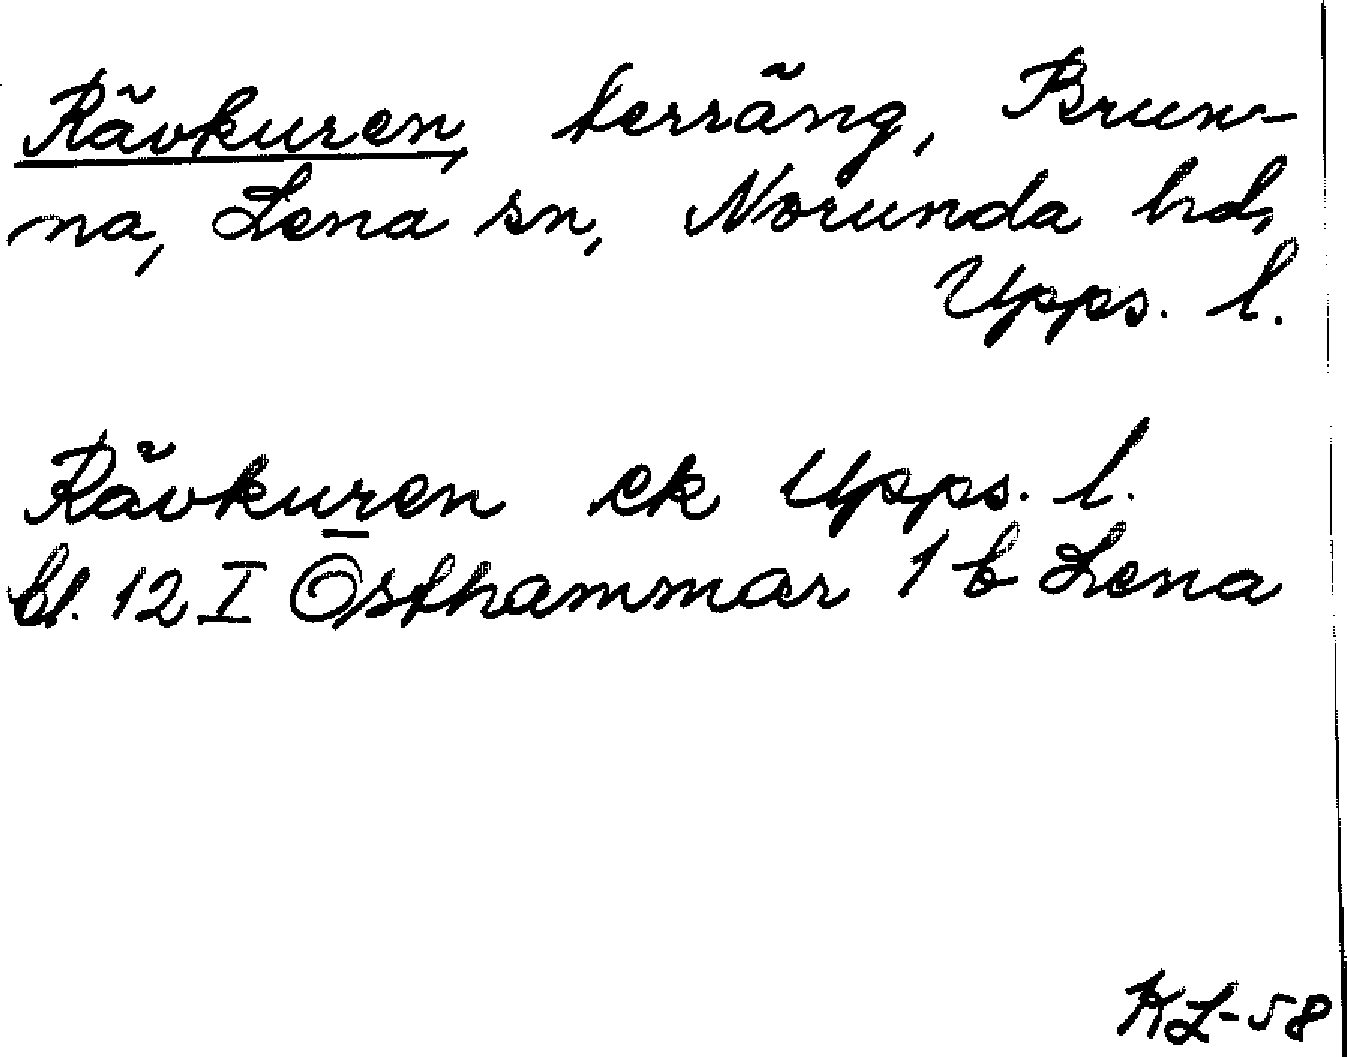 Rävkuren, terräng, Brun-
na, Lena sn, Norunda hd,
Upps. l.
Rävkuren ek Upps. l.
bl. 12 I Östhammar 1 b Lena
KL-58